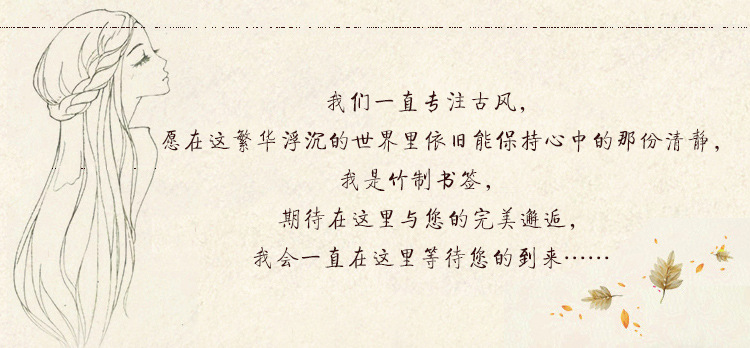 我们一直专注古风，
愿在这繁华浮沉的世界里依旧能保持心中的那份清静，
我是竹制书签，
期待在这里与您的完美邂逅，
我会一直在这里等待您的到来……